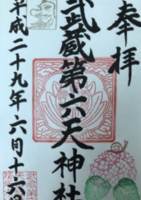 奉拝
武蔵第六天神社
平成二十九年六月十六日